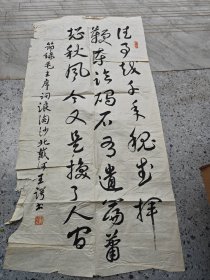 往事越千年魏武挥
鞭东临碣石有遗篇萧
瑟秋风今又是换了人间
节录毛主席词浪淘沙北戴河